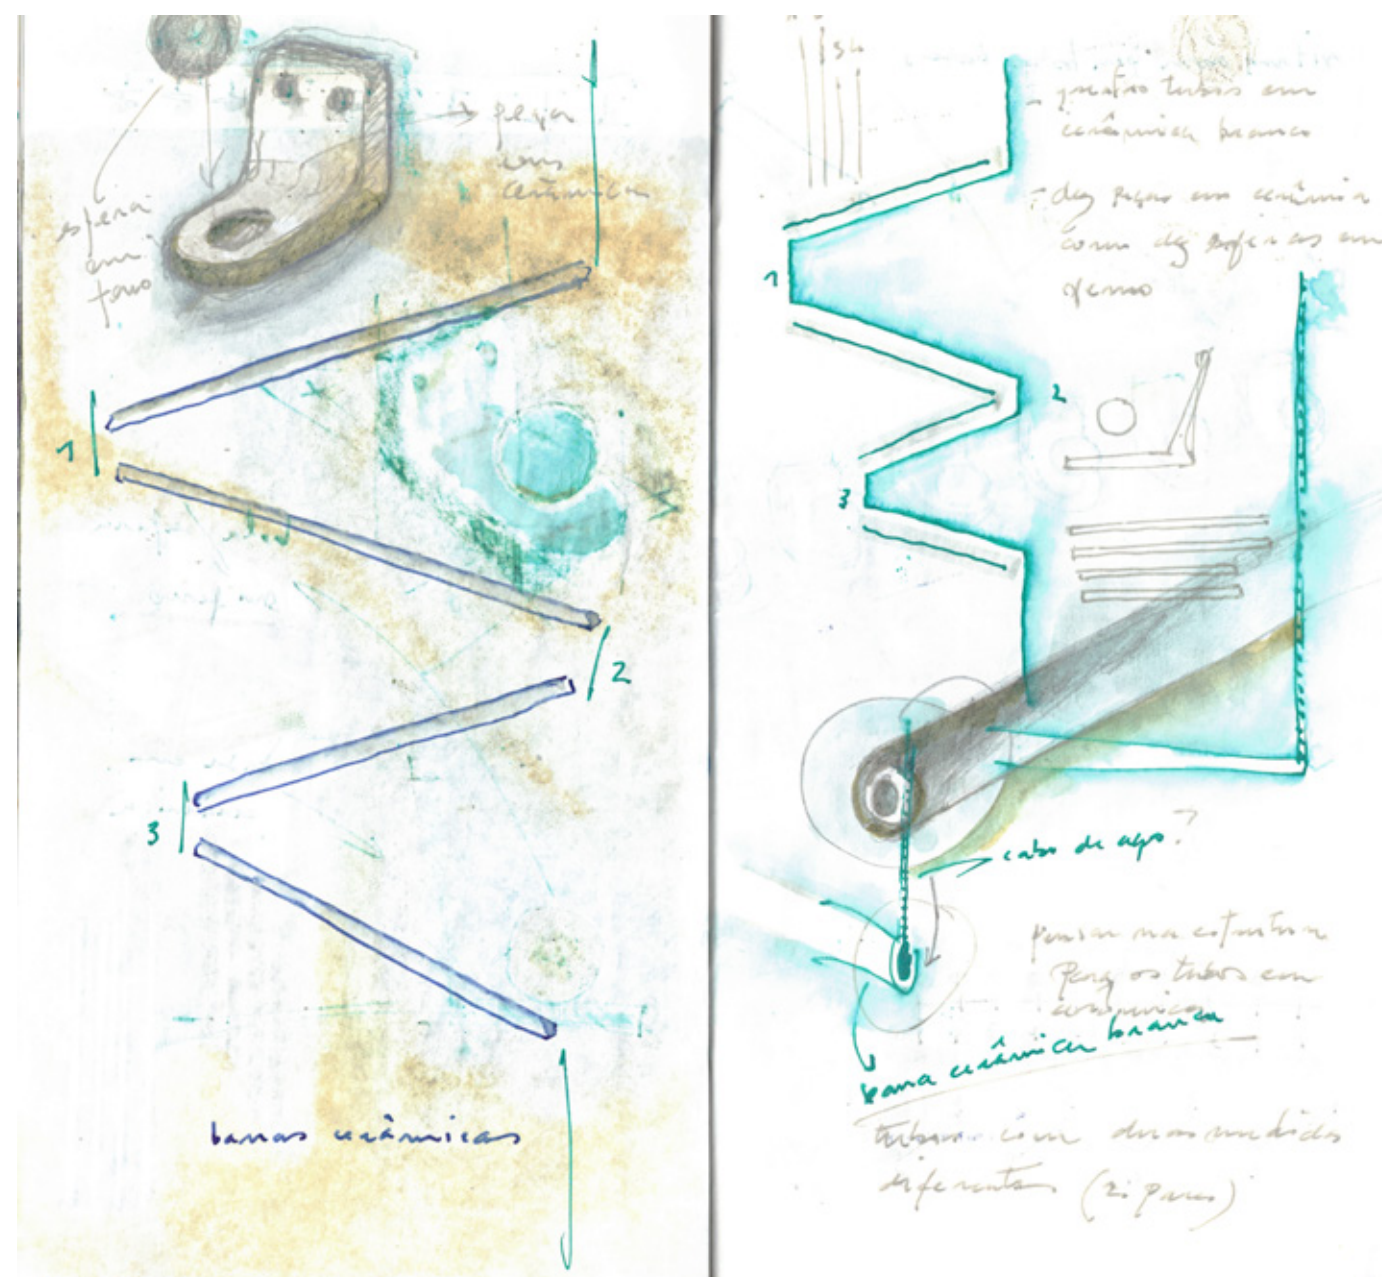 peça
em
cerâmica
esfera
em
ferro
1
2
3
barras cerâmicas
- quatro tubos em
cerâmica branca
- dez peças em cerâmica
com dez esferas em
ferro
1
2
3
cabo de aço?
pensar na estrutura
para os tubos em
cerâmica
barra cerâmica branca
tubos com duas medidas
diferentes (2 pares)